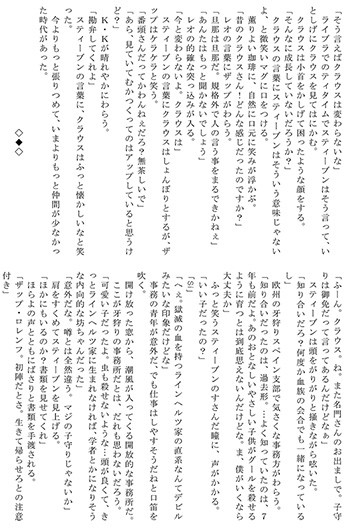 「そう言えばクラウスは変わらないな」
ライブラでのティタイムでスティーブンはそう言って、い
としげにクラウスを見てはにかむ。
クラウスは小首をかしげて困ったような顔をする。
「そんなに成長していないだろうか？」
クラウスの言葉にスティーブンはそういう意味じゃない
よ、と微笑いマグに口をつける。
薫りよい珈琲に、自然に口元に笑みが浮かぶ。
「昔のクラウスさん！どんな感じだったのですか？」
レオの言葉にザップがわらう。
「旦那は旦那だ。規格外で人の言う事をまるできかねぇ」
「あんたはもっと聞かないでしょう」
レオの的確な突っ込みが入る。
「今と変わらないよ。クラウスは」
スティーブンの言葉にクラウスはしょんぼりとするが、ザ
ップがケラケラと笑う。
「番頭さんだってかわんねぇだろ？無茶しいで」
「あら、見ていてむかつくってのはアップしていると思うけ
ど？」
Ｋ・Ｋが晴れやかにわらう。
「勘弁してくれよ」
スティーブンの言葉に、クラウスはふっと懐かしいなと笑
った。
今よりもっと張りつめて、いまよりもっと仲間が少なかっ
た時代があった。
◇◆◇
「ふーん。クラウス、ね。また名門さんのお出ましで。子守
りは御免だって言ってあるんだけどなぁ」
スティーブンは頭をがりがりと掻きながら呟いた。
「知り合いだろ？何度か血族の会合でも一緒になっている
し」
欧州の牙狩りスペイン支部で気さくな事務方がわらう。
「知り合いだったのは、過去形。…よく知っていたのは、７
年も前だよ。あのおとなしいやさしい子供が、ヒルを殺せる
ようにだっとは到底思えないんだけどな。ま、僕がいくなら
大丈夫か」
ふっと笑うスティーブンのすさんだ瞳に、声がかかる。
「いい子だったの？」
「Sí」
「へぇ。獄滅の血を持つラインヘルツ家の直系なんてデビル
みたいな印象だけどな」
事務の青年が意外だ、でも仕事はしやすそうだねと口笛を
吹く。
開け放った窓から、潮風が入ってくる開放的な事務所だ。
ここが牙狩りの事務所とは、だれも思わないだろう。
「可愛い子だったよ。虫も殺せないような…頭が良くて、き
っとラインヘルツ家に生まれなければ、学者とかになりそう
な内向的な坊ちゃんだった」
「意外だな。噂とは全然違う。マジの子守りじゃないか」
肩をすくめて、スティーブンを見上げる。
「ほかにもいるのか？書類を見せてくれ」
ほらよの声とともにばさりと書類を手渡される。
「ザップ・レンフロ。初陣だとさ。生きて帰らせろとの注意
付き」